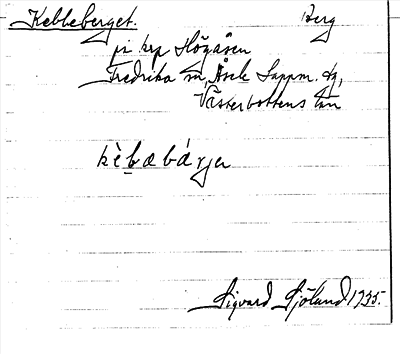 Kebbeberget. Berg
på krp Högåsen
Fredrika sn, Åsele Lappm. dg,
Västerbottens län
kèbæbárjer
Sigvard Sjölund 1935.